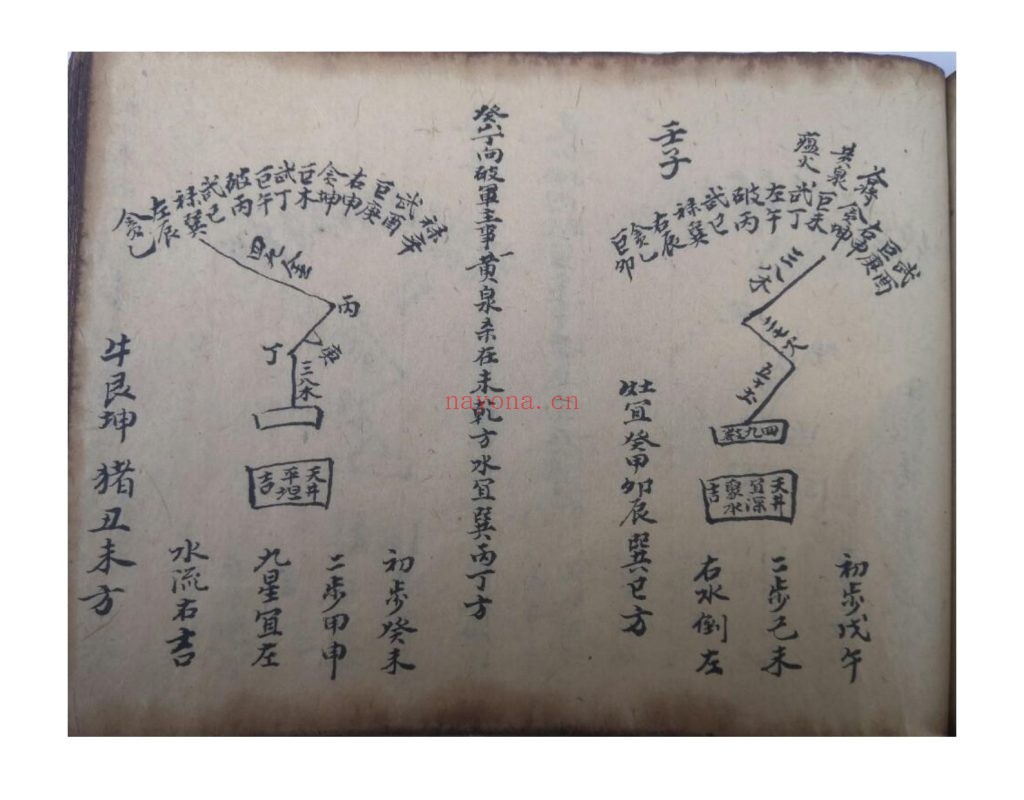 壬子
瘟火
黄泉
武酉
巨庚
贪坤
巨未
武丁
左午
破丙
武巳
禄巽
右辰
贪乙
巨卯
三八木
二七火
五十土
四九金
天井
宜深
聚水
吉
初步戊午
二步己未
右水倒左
灶宜癸甲卯辰巽巳方
癸山丁向破軍主事黄泉杀在未乾方水宜巽丙丁方
禄辛
武酉
巨庚
右申
贪坤
巨未
武丁
巨午
破丙
武巳
禄巽
左辰
贪乙
四九金
丙
庚
丁
三八木
天井
平坦
吉
初步癸未
二步甲申
九星宜左
水流右吉
牛艮坤猪丑未方
nayona.cn